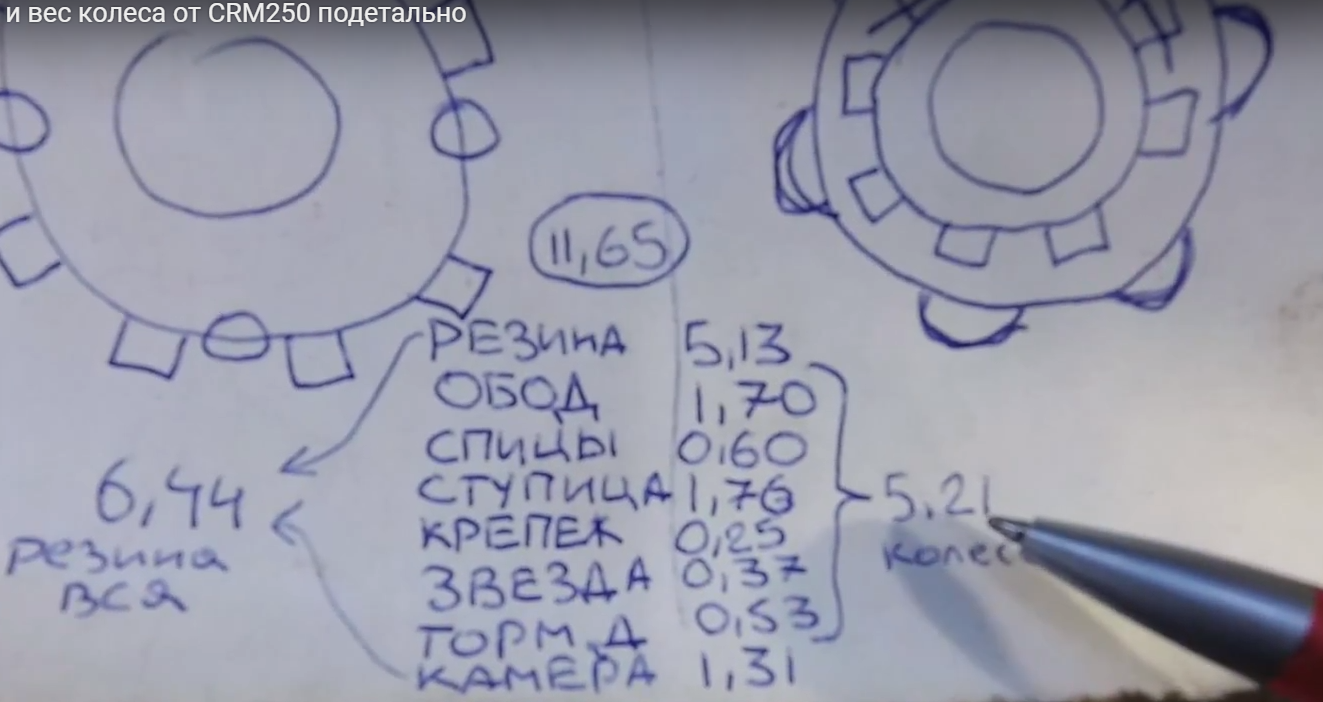 и вес колеса от CRM250 подетально
11,65
РЕЗИНА 5,13
ОБОД 1,70
СПИЦЫ 0,60
СТУПИЦА 1,76
КРЕПЕЖ 0,25
ЗВЕЗДА 0,37
ТОРМ Д 0,53
КАМЕРА 1,31
6,44
резина
вся
5,21